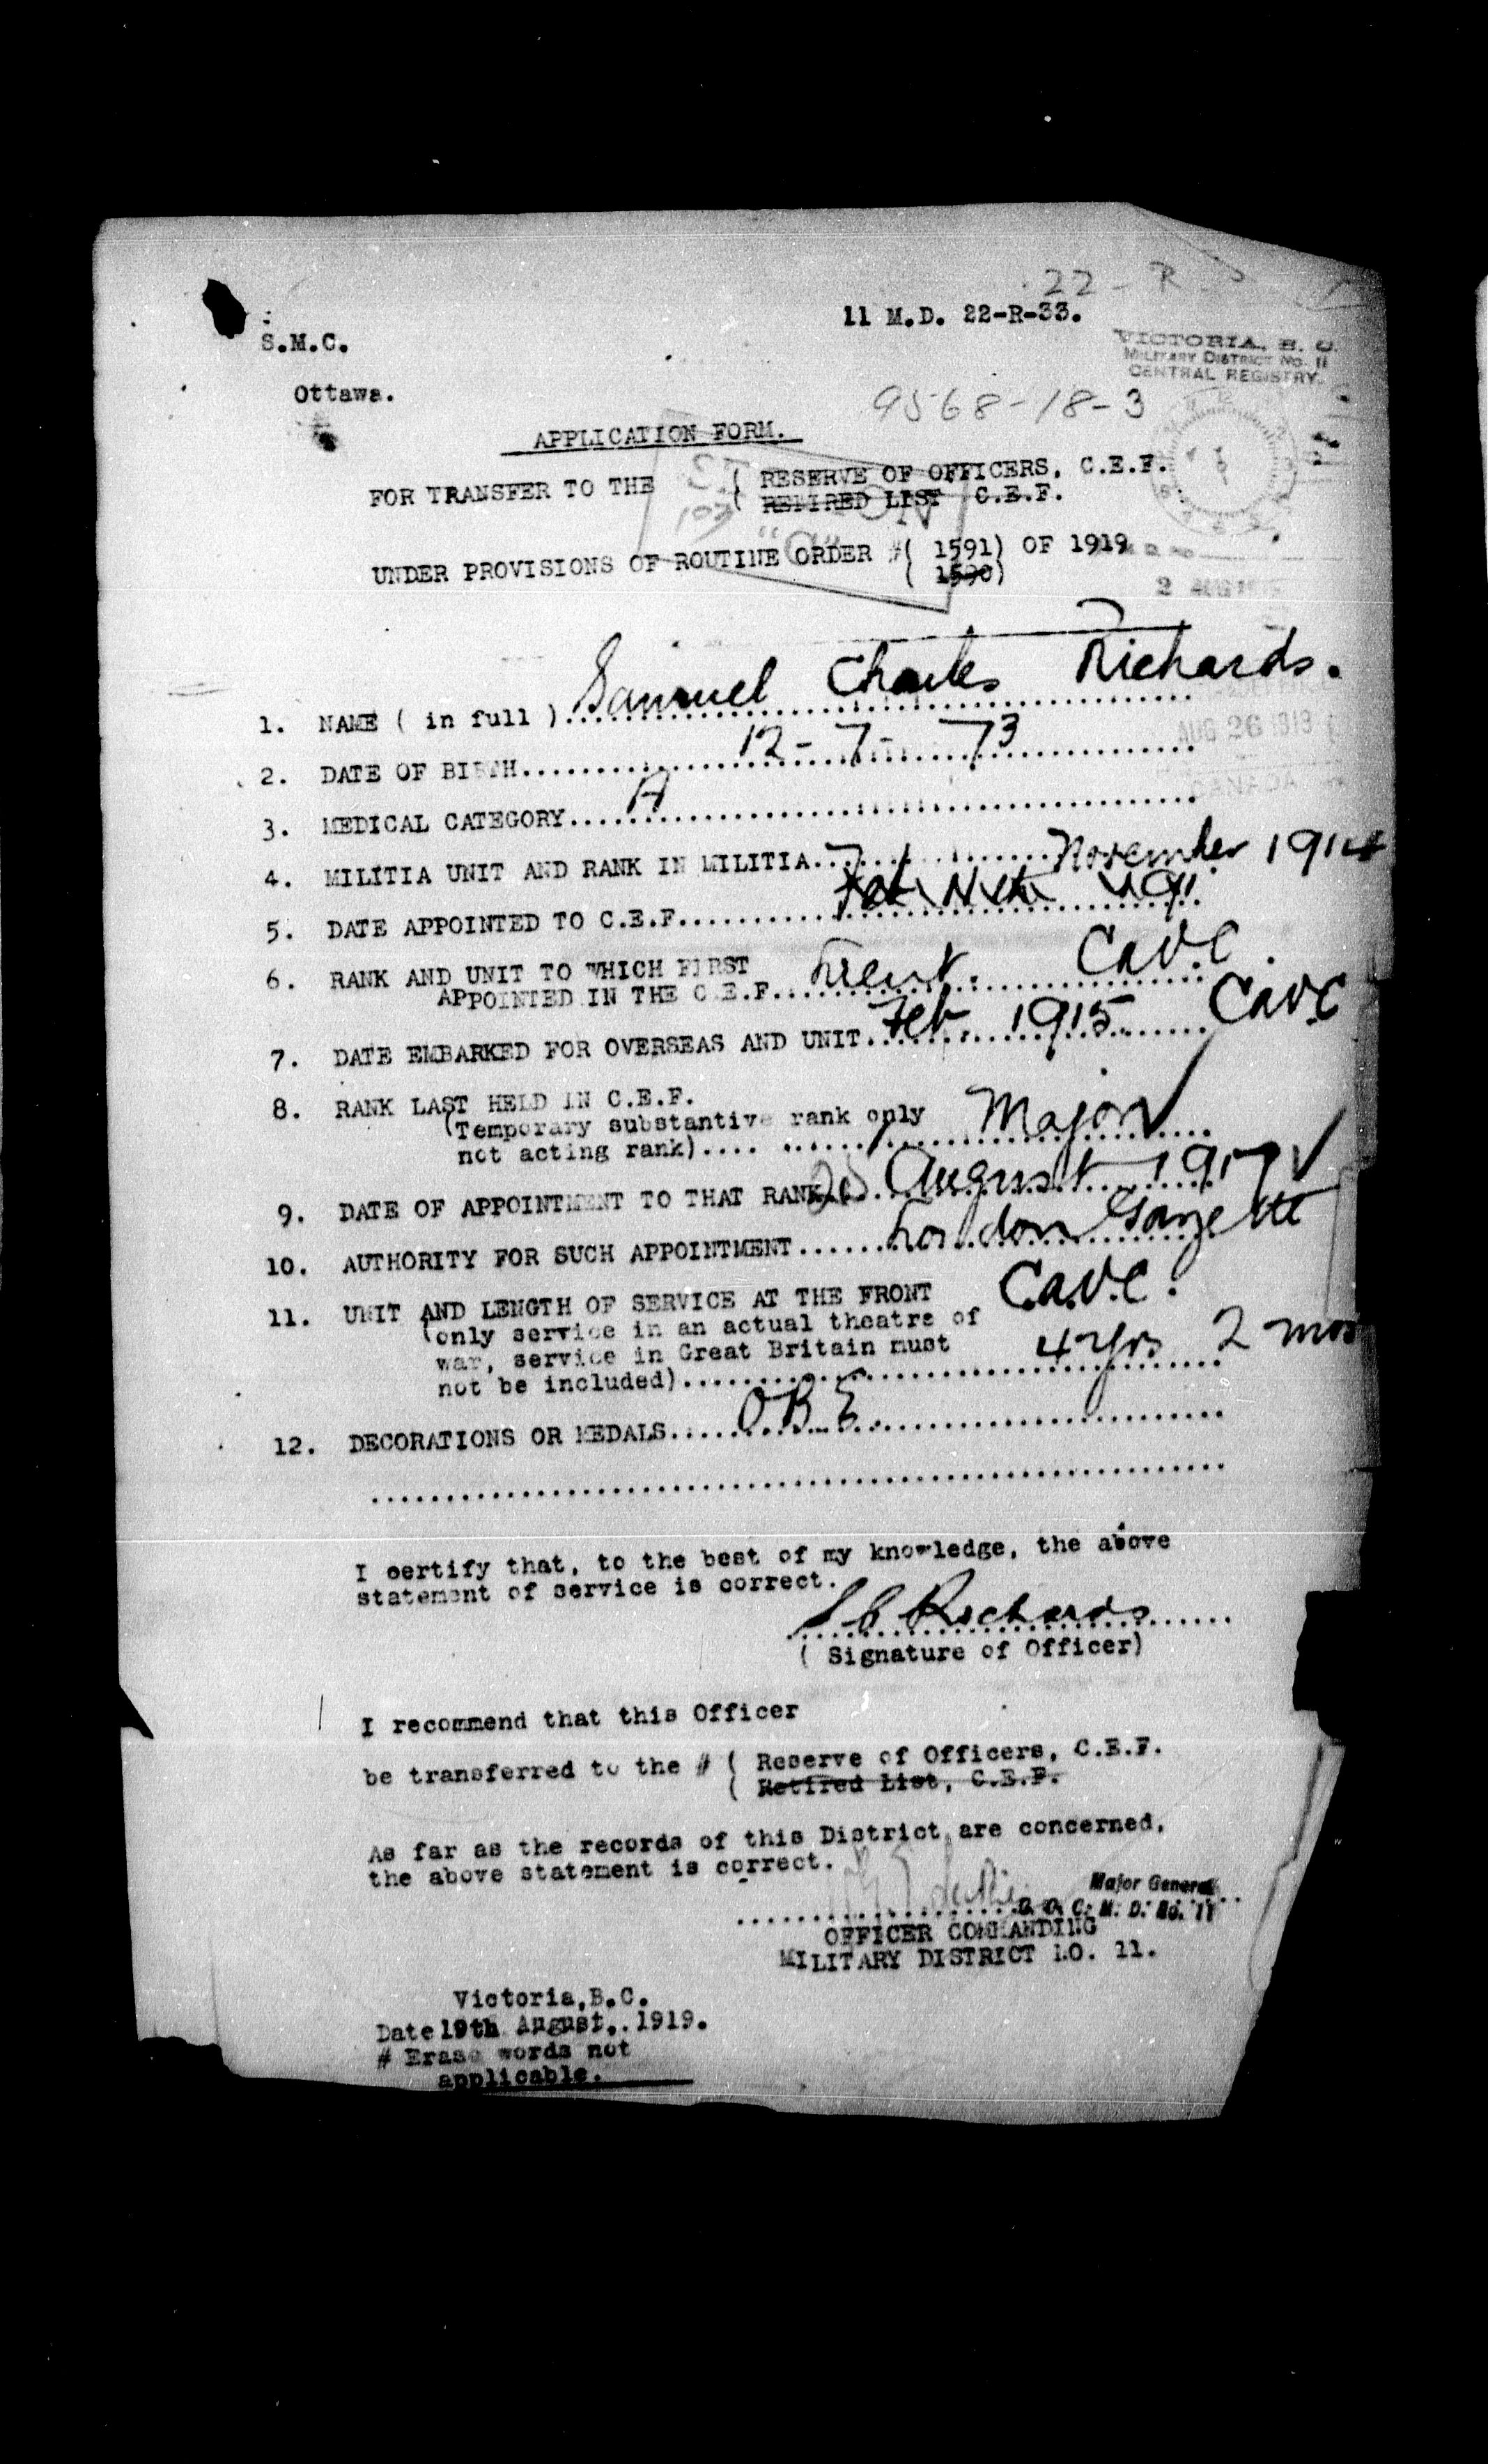 22 - R
11 M.D. 22-R-33.
S.M.C.
VICTORIA, B. C.
MILITARY DISTRICT NO. 11
CENTRAL REGISTRY.
Ottawa.
9568-18-3
APPLICATION FORM.
FOR TRANSFER TO THE ( RESERVE OF OFFICERS, C.E.F.
( RETIRED LIST C.E.F.
UNDER PROVISIONS OF ROUTINE ORDER #( 1591) OF 1919
( 1590)
2 AUG
1. NAME ( in full ) Samuel Charles Richards.
AUG 26 1919
2. DATE OF BIRTH 12-7-73
CANADA
3. MEDICAL CATEGORY A
4. MILITIA UNIT AND RANK IN MILITIA
November 1914
5. DATE APPOINTED TO C.E.F.
6. RANK AND UNIT TO WHICH FIRST
APPOINTED IN THE C.E.F. Lieut. C.A.V.C.
7. DATE EMBARKED FOR OVERSEAS AND UNIT Feb. 1915 C.A.V.C
8. RANK LAST HELD IN C.E.F.
(Temporary substantive rank only
not acting rank) Major
9. DATE OF APPOINTMENT TO THAT RANK August 1917
10. AUTHORITY FOR SUCH APPOINTMENT London Gazette
11. UNIT AND LENGTH OF SERVICE AT THE FRONT C.A.V.C.
(only service in an actual theatre of
war, service in Great Britain must
not be included) 4 yrs 2 mos
12. DECORATIONS OR MEDALS O.B.E.
I certify that, to the best of my knowledge, the above
statement of service is correct.
S C Richards
( Signature of Officer)
I recommend that this Officer
be transferred to the # ( Reserve of Officers, C.E.F.
( Retired List, C.E.F.
As far as the records of this District are concerned,
the above statement is correct.
Major General
D. O. C. M. D. No. 11
OFFICER COMMANDING
MILITARY DISTRICT NO. 11.
Victoria, B.C.
Date 19th August, 1919.
# Erase words not
applicable.